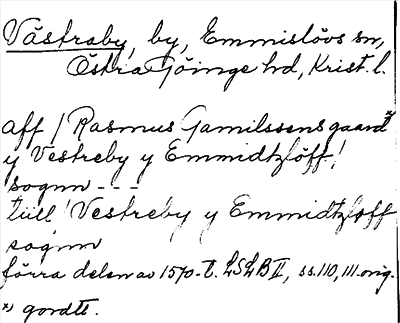 Västraby, by, Emmislövs sn,
Östra Göinge hd, Krist. l.
aff / Rasmus Gamilssens gaard x)
y Vestreby y Emmidtzlöff /
sognn - - -
tiill / Vestreby y Emmidtzloff
sognn
förra delen av 1570-t. LSLB II, ss. 110, 111. orig.
x) gordtt.